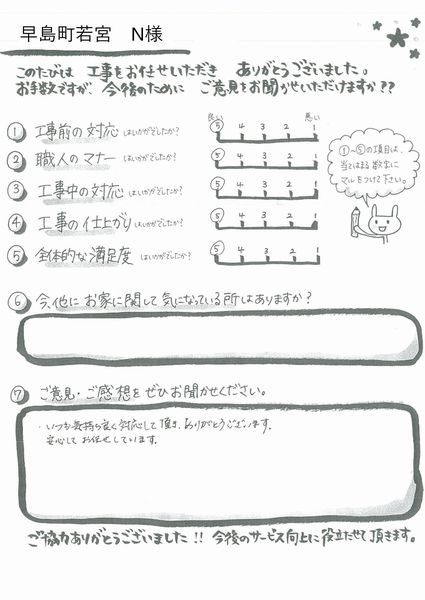 早島町若宮　N様
このたびは 工事をお任せいただき ありがとうございました。
お手数ですが 今後のために ご意見をお聞かせいただけますか??
良い 悪い
① 工事前の対応 はいかがでしたか? 5 4 3 2 1
② 職人のマナー はいかがでしたか? 5 4 3 2 1
③ 工事中の対応 はいかがでしたか? 5 4 3 2 1
④ 工事の仕上がり はいかがでしたか? 5 4 3 2 1
⑤ 全体的な満足度 はいかがでしたか? 5 4 3 2 1
①~⑤の項目は、
当てはまる数字に
マルをつけて下さい。
⑥ 今、他に お家に関して 気になっている所はありますか?
⑦ ご意見・ご感想を ぜひお聞かせください。
・いつも気持ち良く対応して頂き、ありがとうございます。
安心してお任せしています。
ご協力ありがとうございました!! 今後のサービス向上に役立たせて頂きます。